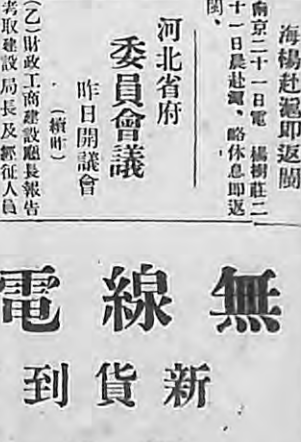 海楊赴滬即返閩
南京二十一日電　楊樹莊二
十一日晨赴滬、略休息即返
閩、
河北省府
委員會議
昨日開議會
(續昨)
(乙)財政工商建設廳長報告
考取建設局長及經征人員
無線電
新貨到